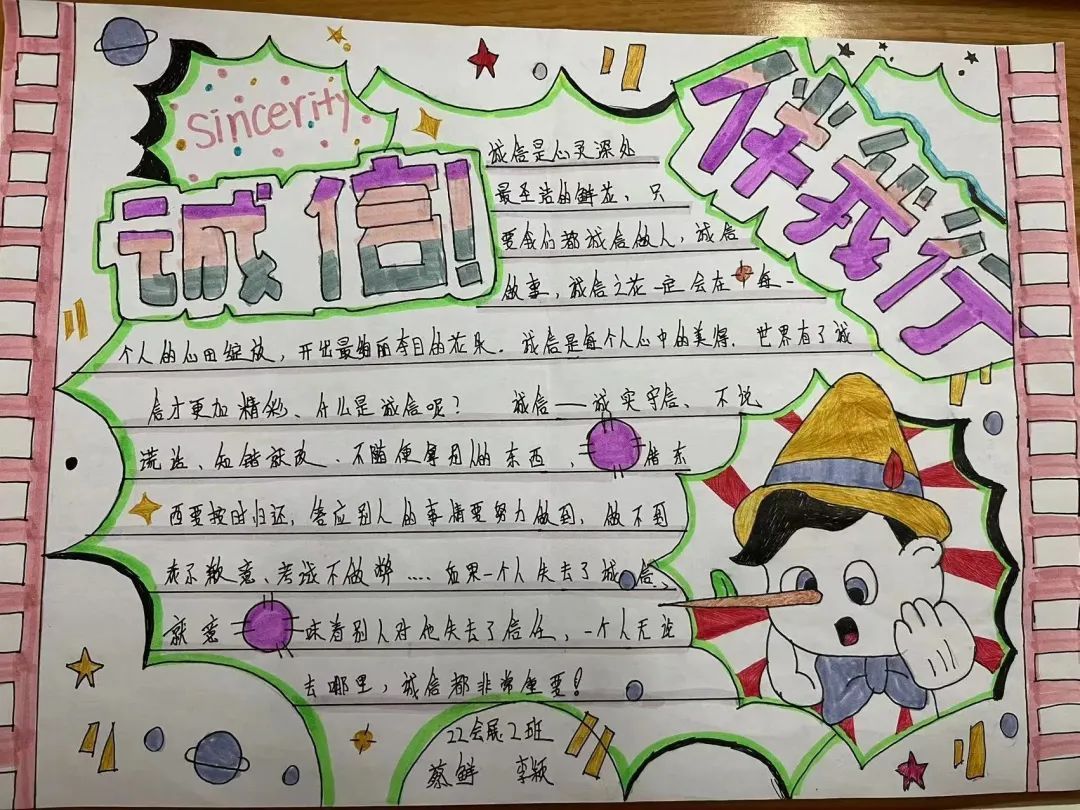 sincerity
诚信!
伴我行
诚信是心灵深处
最圣洁的鲜花，只
要我们都诚信做人，诚信
做事，诚信之花一定会在每一
个人的心田绽放，开出最绚丽夺目的花朵。诚信是每个人心中的美得。世界有了诚
信才更加精彩、什么是诚信呢？ 诚信——诚实守信、不说
谎话、知错就改、不随便拿别人的东西、借东
西要按时归还，答应别人的事情要努力做到，做不到
表示歉意、考试不做弊....如果一个人失去了诚信、
就意味着别人对他失去了信任，一个人无论
去哪里，诚信都非常重要！
22会展2班
蔡鲜 李颖